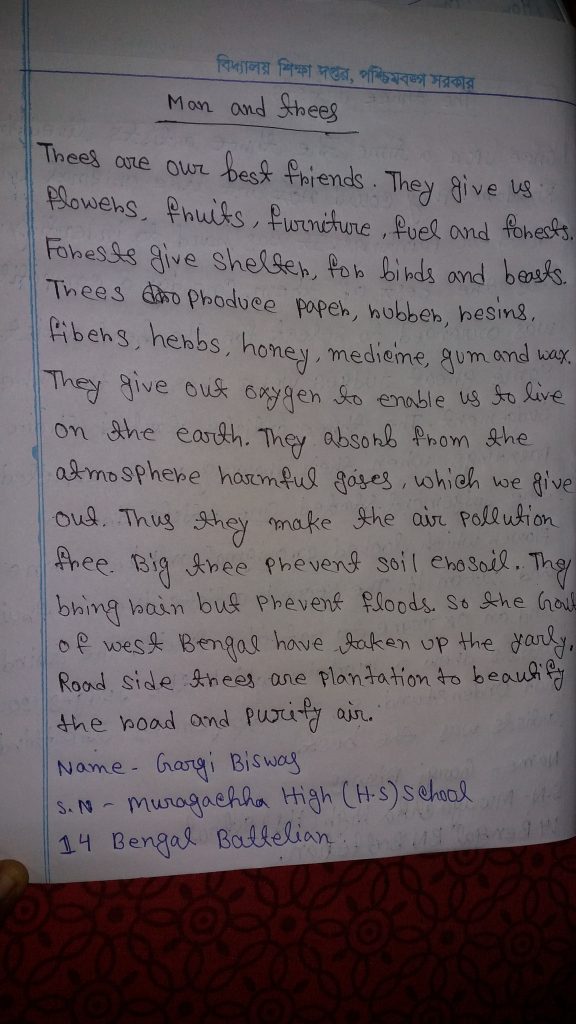 বিদ্যালয় শিক্ষা দপ্তর, পশ্চিমবঙ্গ সরকার
Man and trees
Trees are our best friends. They give us
flowers, fruits, furniture, fuel and forests.
Forests give shelter, for birds and beasts.
Trees produce paper, rubber, resins,
fibers, herbs, honey, medicine, gum and wax.
They give out oxygen to enable us to live
on the earth. They absorb from the
atmosphere harmful gases, which we give
out. Thus they make the air pollution
free. Big tree prevent soil erosoil. They
bring rain but prevent floods. So the Govt
of west Bengal have taken up the yarly.
Road side trees are plantation to beautify
the road and purify air.
Name - Gargi Biswas
S.N - Muragachha High (H.S) School
14 Bengal Battelian